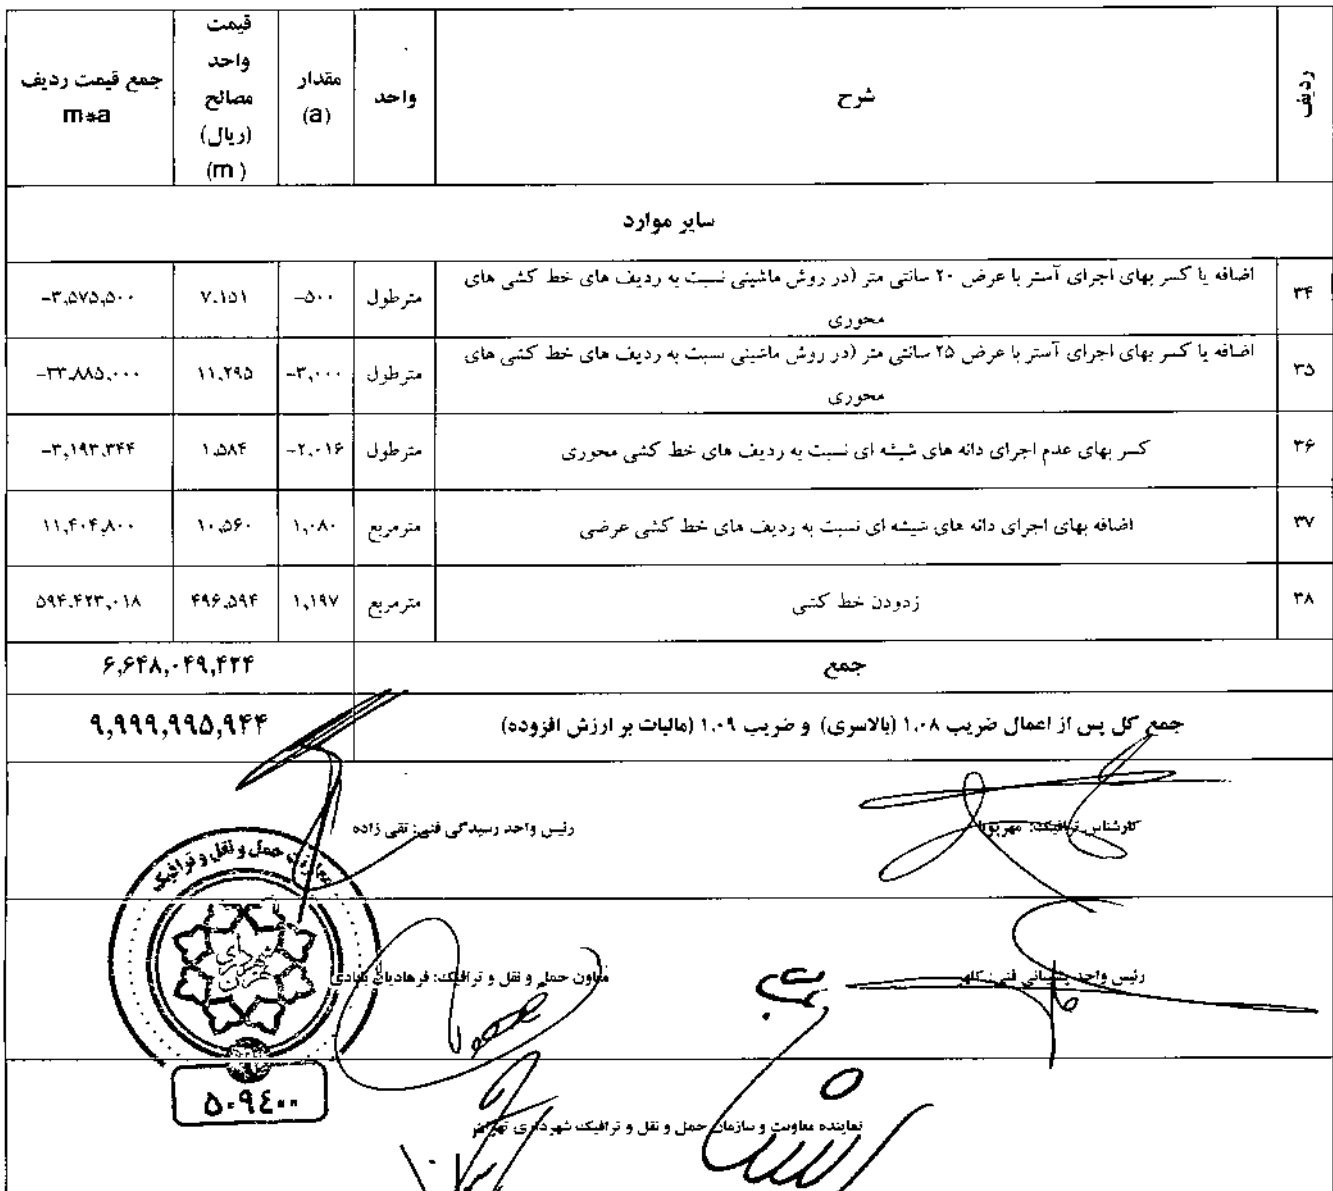 ردیف شرح واحد مقدار (a) قیمت واحد مصالح (ریال) (m) جمع قیمت ردیف m*a
سایر موارد
۳۴ اضافه یا کسر بهای اجرای آستر با عرض ۲۰ سانتی متر (در روش ماشینی نسبت به ردیف های خط کشی های محوری مترطول -۵۰۰ ۷،۱۵۱ -۳,۵۷۵,۵۰۰
۳۵ اضافه یا کسر بهای اجرای آستر با عرض ۲۵ سانتی متر (در روش ماشینی نسبت به ردیف های خط کشی های محوری مترطول -۳,۰۰۰ ۱۱,۲۹۵ -۳۳,۸۸۵,۰۰۰
۳۶ کسر بهای عدم اجرای دانه های شیشه ای نسبت به ردیف های خط کشی محوری مترطول -۲,۰۱۶ ۱,۵۸۴ -۳,۱۹۳,۳۴۴
۳۷ اضافه بهای اجرای دانه های شیشه ای نسبت به ردیف های خط کشی عرضی مترمربع ۱,۰۸۰ ۱۰,۵۶۰ ۱۱,۴۰۴,۸۰۰
۳۸ زدودن خط کشی مترمربع ۱,۱۹۷ ۴۹۶,۵۹۴ ۵۹۴,۴۲۳,۰۱۸
جمع ۶,۶۴۸,۰۴۹,۴۲۴
جمع کل پس از اعمال ضریب ۱.۰۸ (بالاسری) و ضریب ۱.۰۹ (مالیات بر ارزش افزوده) ۹,۹۹۹,۹۹۵,۹۴۴
کارشناس ترافیک: مهرپویا
رئیس واحد رسیدگی فنی: تقی زاده
معاونت حمل و نقل و ترافیک
شهرداری تهران
رئیس واحد پشتیبانی فنی:
معاون حمل و نقل و ترافیک: فرهادیان
۵۰۹٤۰۰
نماینده معاونت و سازمان حمل و نقل و ترافیک شهرداری تهران